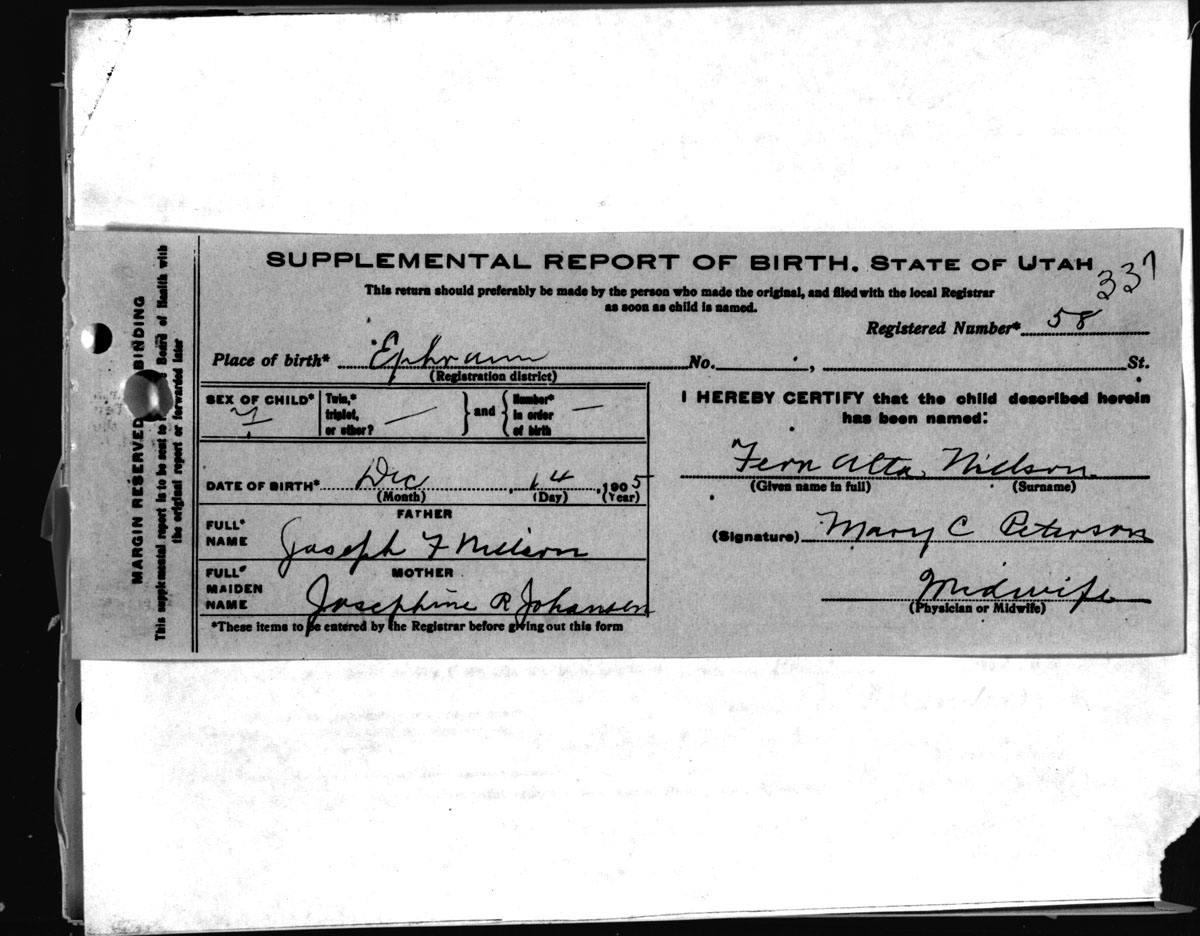 SUPPLEMENTAL REPORT OF BIRTH. STATE OF UTAH
337
This return should preferably be made by the person who made the original, and filed with the local Registrar
as soon as child is named.
Registered Number* 58
Place of birth* Ephraim No. , St.
(Registration district)
SEX OF CHILD* F
Twin,* triplet, or other? —
and
Number* in order of birth —
DATE OF BIRTH* Dec 14, 1905
(Month) (Day) (Year)
FATHER
FULL* NAME Joseph F Nielson
MOTHER
FULL* MAIDEN NAME Josephine R Johansen
*These items to be entered by the Registrar before giving out this form
I HEREBY CERTIFY that the child described herein
has been named:
Fern Alta Nielson
(Given name in full) (Surname)
(Signature) Mary C Peterson
Midwife
(Physician or Midwife)
MARGIN RESERVED BINDING
This supplemental report is to be sent to Board of Health with
the original report or forwarded later